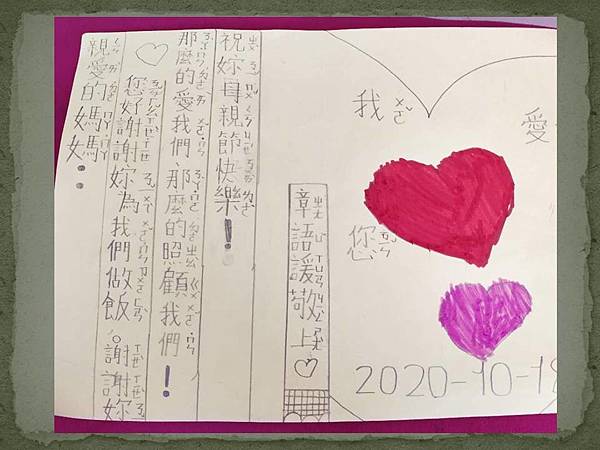 親愛的媽媽：
您好謝謝妳為我們做飯。謝謝妳
那麼的愛我們,那麼的照顧我們！
祝妳母親節快樂！
章語媛敬上
我愛您
2020-10-18